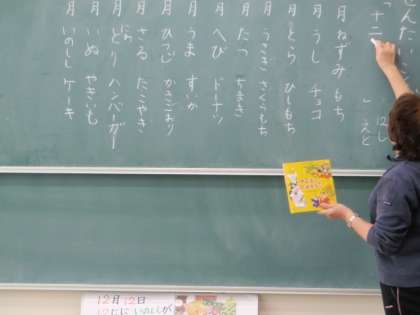 十二
えと
月 ねずみ もち
月 うし チョコ
月 とら ひしもち
月 うさぎ さくらもち
月 たつ ちまき
月 へび ドーナツ
月 うま すいか
月 ひつじ かきごおり
月 さる たこやき
月 とり ハンバーガー
月 いぬ やきいも
月 いのしし ケーキ
12月12日
いのししが